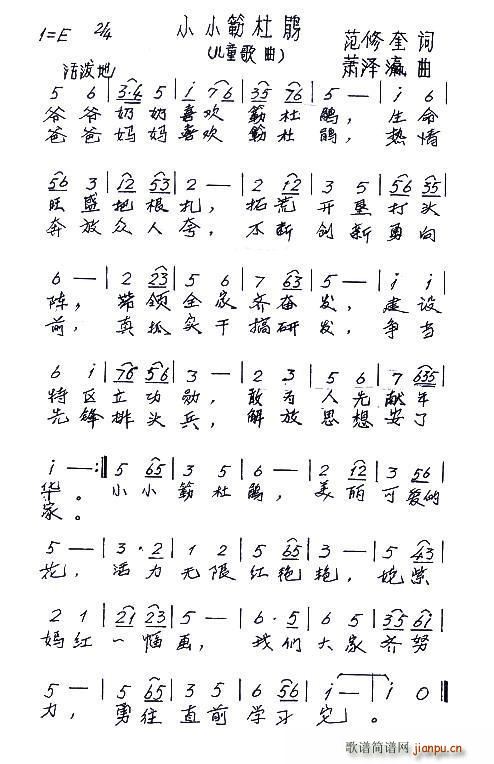 1=E 2/4 小小簕杜鹃 范修奎 词
活泼地 (儿童歌曲) 萧泽瀛 曲
5 6 | 3·4 5 | i 76 | 35 76 | 5 — | i 6 |
爷爷奶奶喜欢簕杜鹃，生命
爸爸妈妈喜欢簕杜鹃，热情
56 3 | 12 53 | 2 — | 2 12 | 3 5 | 56 35 |
旺盛把根扎，拓荒开垦打头
奔放众人夸，不断创新勇向
6 — | 2 23 | 5 6 | 7 63 | 5 — | i i |
阵，带领全家齐奋发，建设
前，真抓实干搞研发，争当
6 i | 76 56 | 3 — | 2 3 | 5 6 | 7 635 |
特区立功勋，敢为人先献年
先锋排头兵，解放思想安了
i — :| 5 65 | 3 5 | 3 — | 2 12 | 3 56 |
华。小小簕杜鹃，美丽可爱的
家。
5 — | 3·2 | 1 2 | 5 65 | 3 — | 5 43 |
花，活力无限红艳艳，姹紫
2 1 | 21 23 | 5 — | 6·5 | 6 5 | 35 61 |
嫣红一幅画，我们大家齐努
5 — | 5 65 | 3 5 | 6 56 | i — | i 0 ‖
力，勇往直前学习它。
歌谱简谱网
jianpu.cn